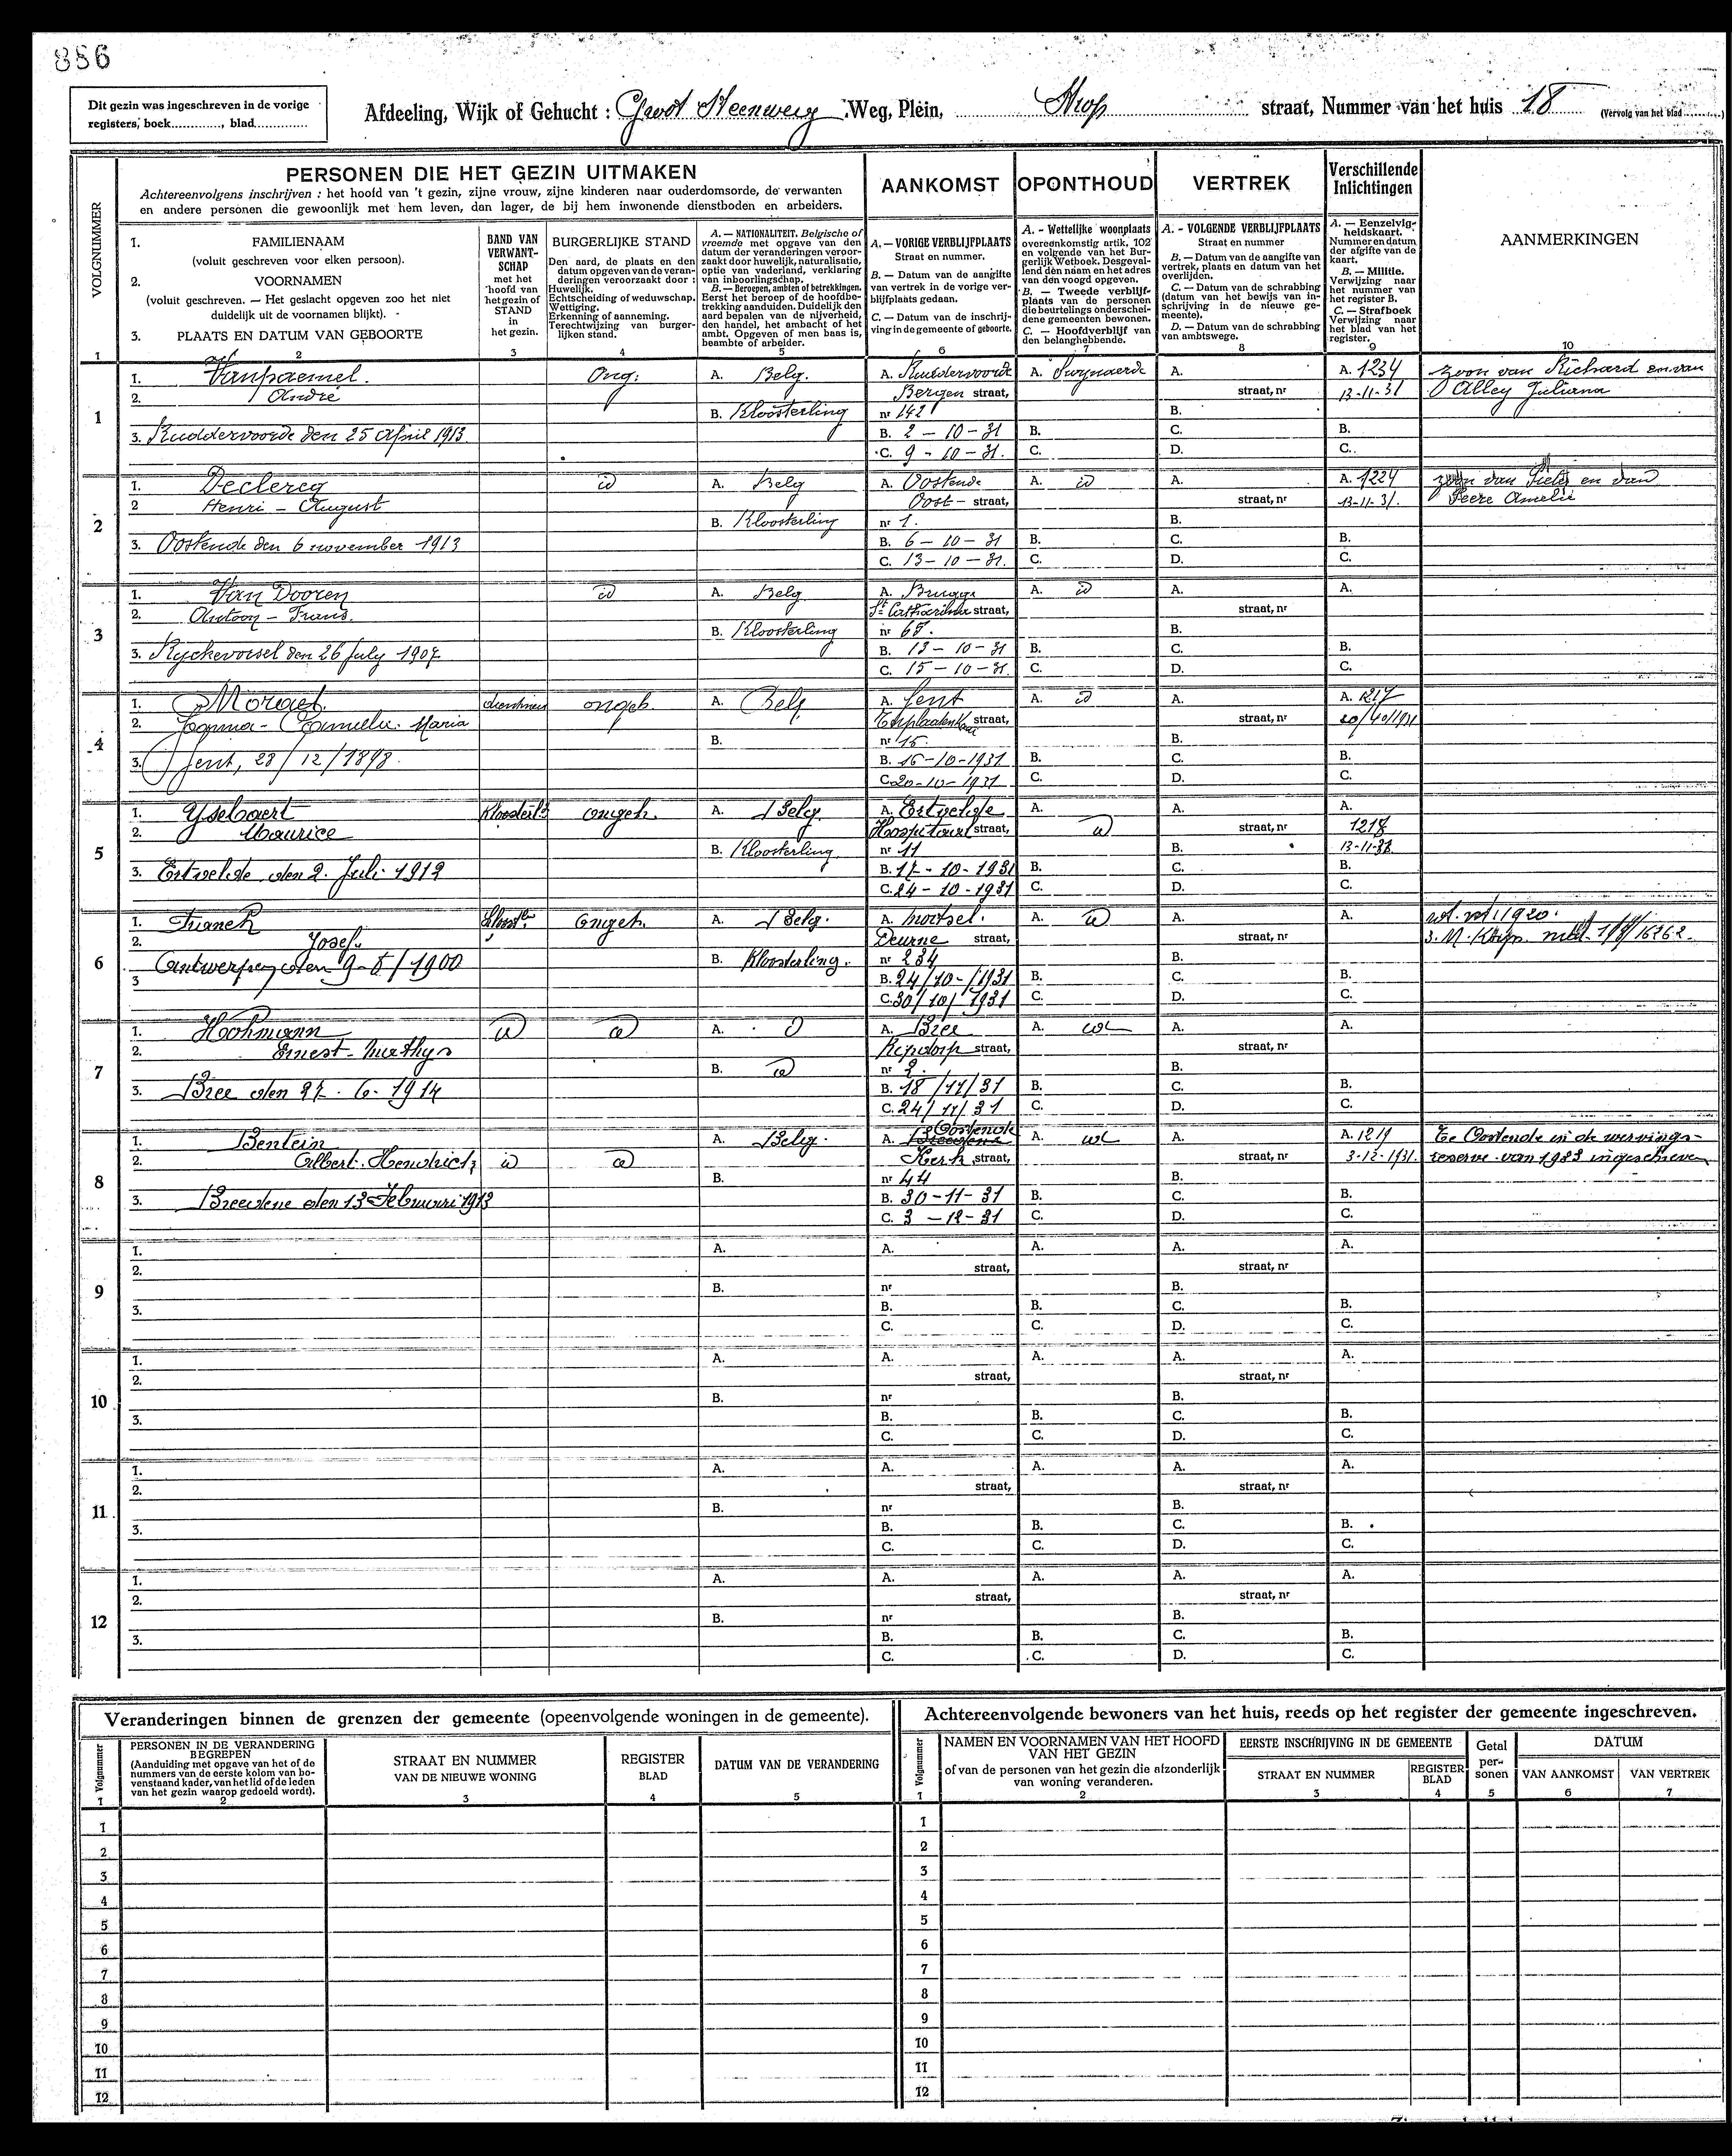 886
Dit gezin was ingeschreven in de vorige
registers, boek............, blad..............
Afdeeling, Wijk of Gehucht : Groot Steenweg .Weg, Plein, Strop straat, Nummer van het huis 18 (Vervolg van het blad ..........)
PERSONEN DIE HET GEZIN UITMAKEN
Achtereenvolgens inschrijven : het hoofd van 't gezin, zijne vrouw, zijne kinderen naar ouderdomsorde, de verwanten
en andere personen die gewoonlijk met hem leven, dan lager, de bij hem inwonende dienstboden en arbeiders.
AANKOMST
OPONTHOUD
VERTREK
Verschillende
Inlichtingen
AANMERKINGEN
VOLGNUMMER
1. FAMILIENAAM
(voluit geschreven voor elken persoon).
2. VOORNAMEN
(voluit geschreven. — Het geslacht opgeven zoo het niet
duidelijk uit de voornamen blijkt).
3. PLAATS EN DATUM VAN GEBOORTE
BAND VAN
VERWANT-
SCHAP
met het
hoofd van
het gezin of
STAND
in
het gezin.
BURGERLIJKE STAND
Den aard, de plaats en den
datum opgeven van de veran-
deringen veroorzaakt door :
Huwelijk.
Echtscheiding of weduwschap.
Wettiging.
Erkenning of aanneming.
Terechtwijzing van burger-
lijken stand.
A. — NATIONALITEIT. Belgische of
vreemde met opgave van den
datum der veranderingen veroor-
zaakt door huwelijk, naturalisatie,
optie van vaderland, verklaring
van inboorlingschap.
B. — Beroepen, ambten of betrekkingen.
Eerst het beroep of de hoofdbe-
trekking aanduiden. Duidelijk den
aard bepalen van de nijverheid,
den handel, het ambacht of het
ambt. Opgeven of men baas is,
beambte of arbeider.
A. — VORIGE VERBLIJFPLAATS
Straat en nummer.
B. — Datum van de aangifte
van vertrek in de vorige ver-
blijfplaats gedaan.
C. — Datum van de inschrij-
ving in de gemeente of geboorte.
A. - Wettelijke woonplaats
overeenkomstig artik. 102
en volgende van het Bur-
gerlijk Wetboek. Desgeval-
lend den naam en het adres
van den voogd opgeven.
B. — Tweede verblijf-
plaats van de personen
die beurtelings onderschei-
dene gemeenten bewonen.
C. — Hoofdverblijf van
den belanghebbende.
A. - VOLGENDE VERBLIJFPLAATS
Straat en nummer
B. — Datum van de aangifte van
vertrek, plaats en datum van het
overlijden.
C. — Datum van de schrabbing
(datum van het bewijs van in-
schrijving in de nieuwe ge-
meente).
D. — Datum van de schrabbing
van ambtswege.
A. — Eenzelvig-
heidskaart.
Nummer en datum
der afgifte van de
kaart.
B. — Militie.
Verwijzing naar
het nummer van
het register B.
C. — Strafboek
Verwijzing naar
het blad van het
register.
1 2 3 4 5 6 7 8 9 10
1
1. Vanpaemel. Ong: A. Belg. A. Ruddervoorde A. Swynaerde A. A. 1234 zoon van Richard en van
2. André Bergen straat, straat, nr 13-11-31 Alley Juliana
B. Kloosterling nr 142 B.
3. Ruddervoorde den 25 April 1913. B. 2 - 10 - 31 B. C. B.
C. 9 - 10 - 31. C. D. C.
2
1. Declercq id A. Belg A. Oostende A. id A. A. 1224 zoon van Piets en van
2 Henri - August Oost - straat, straat, nr 13-11-31. Peere Amelie
B. Kloosterling nr 1. B.
3. Oostende den 6 november 1913 B. 6 - 10 - 31 B. C. B.
C. 13 - 10 - 31. C. D. C.
3
1. Van Dooren id A. Belg A. Brugge A. id A. A.
2. Antoon - Frans. St Catharina straat, straat, nr
B. Kloosterling nr 65. B.
3. Ryckevorsel den 26 July 1907 B. 13 - 10 - 31 B. C. B.
C. 15 - 10 - 31. C. D. C.
4
1. Moraet ongeh. A. Belg A. Gent A. id A. A. 1217
2. Camelia. Maria straat, straat, nr 20/10/1931
B. nr 15. B.
3. Gent, 28/12/1898. B. 16-10-1931 B. C. B.
C. 20-10-1931 C. D. C.
5
1. Ysebaert Kloosterl. ongeh. A. Belg A. Ertvelde A. A. A.
2. Maurice Hospitaal straat, id straat, nr 1218
B. Kloosterling nr 11 B. 13-11-31.
3. Ertvelde den 2. Juli 1912 B. 17 - 10 - 1931 B. C. B.
C. 24 - 10 - 1931 C. D. C.
6
1. Franck Kloostl. ongeh. A. Belg. A. Mortsel. A. id A. A.
2. Josef. Deurne straat, straat, nr
B. Kloosterling. nr 234 B.
3 Antwerpen den 9-5/1900 B. 24/10-/1931 B. C. B.
C. 30/10/1931 C. D. C.
7
1. Hoohmann id id A. A. Bree A. id A. A.
2. Ernest - Mathys Ryndorp straat, straat, nr
B. id nr 2. B.
3. Bree den 27. 6. 1914 B. 18/11/31 B. C. B.
C. 24/11/31 C. D. C.
8
1. Bentein A. Belg. A. Breedene Oostende A. id A. A. 1219 Te Oostende in de wervings-
2. Albert. Hendrick id id Kerk straat, straat, nr 3-12-1931. reserve van 1933 ingeschreven
B. nr 44 B.
3. Breedene den 13 Februari 1913 B. 30-11-31 B. C. B.
C. 3 - 12 - 31 C. D. C.
9
1. A. A. A. A. A.
2. straat, straat, nr
B. nr B.
3. B. B. C. B.
C. C. D. C.
10
1. A. A. A. A. A.
2. straat, straat, nr
B. nr B.
3. B. B. C. B.
C. C. D. C.
11
1. A. A. A. A. A.
2. straat, straat, nr
B. nr B.
3. B. B. C. B.
C. C. D. C.
12
1. A. A. A. A. A.
2. straat, straat, nr
B. nr B.
3. B. B. C. B.
C. C. D. C.
Veranderingen binnen de grenzen der gemeente (opeenvolgende woningen in de gemeente).
Volgnummer
PERSONEN IN DE VERANDERING
BEGREPEN
(Aanduiding met opgave van het of de
nummers van de eerste kolom van bo-
venstaand kader, van het lid of de leden
van het gezin waarop gedoeld wordt).
STRAAT EN NUMMER
VAN DE NIEUWE WONING
REGISTER
BLAD
DATUM VAN DE VERANDERING
1 2 3 4 5
1
2
3
4
5
6
7
8
9
10
11
12
Achtereenvolgende bewoners van het huis, reeds op het register der gemeente ingeschreven.
Volgnummer
NAMEN EN VOORNAMEN VAN HET HOOFD
VAN HET GEZIN
of van de personen van het gezin die afzonderlijk
van woning veranderen.
EERSTE INSCHRIJVING IN DE GEMEENTE
STRAAT EN NUMMER
REGISTER
BLAD
Getal
per-
sonen
DATUM
VAN AANKOMST
VAN VERTREK
1 2 3 4 5 6 7
1
2
3
4
5
6
7
8
9
10
11
12